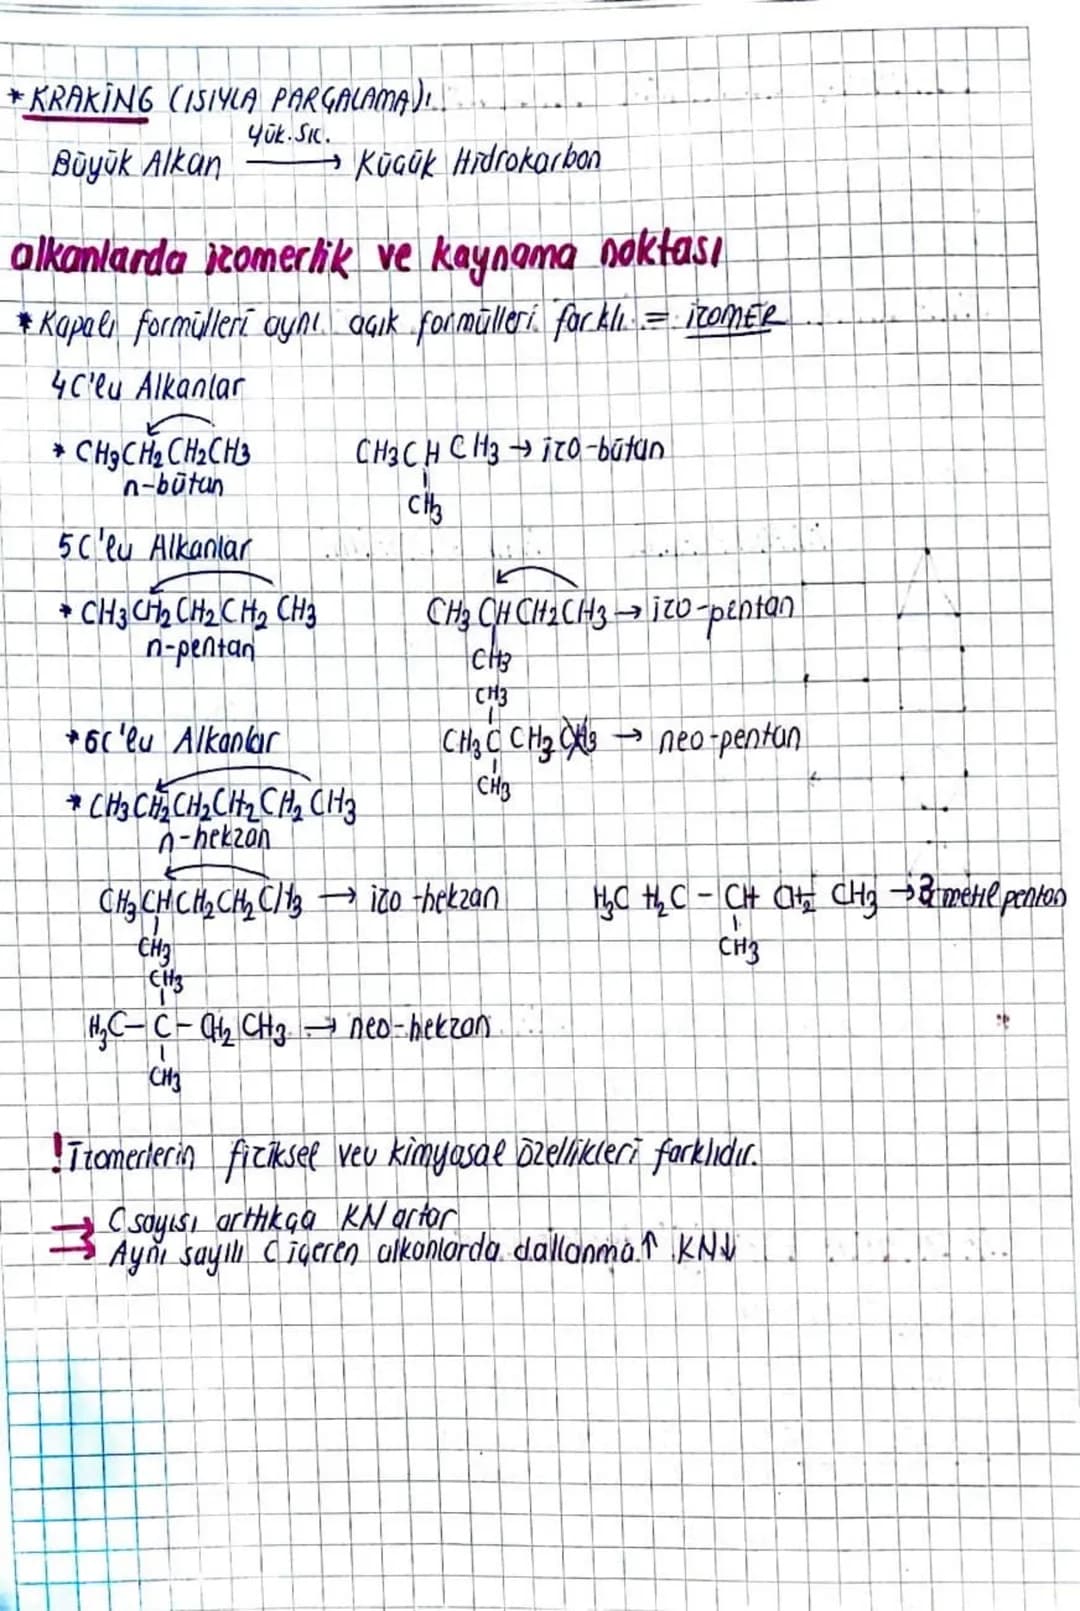 * KRAKİNG (ISIYLA PARÇALAMA):
Yük. Sıc.
Büyük Alkan → Küçük Hidrokarbon
alkanlarda izomerlik ve kaynama noktası
* Kapalı formülleri aynı açık formülleri farklı = İZOMER
4C'lu Alkanlar
* CH3CH2CH2CH3 CH3CHCH3 → izo-bütan
n-bütan CH3
5C'lu Alkanlar
* CH3CH2CH2CH2CH3 CH3CHCH2CH3 → izo-pentan
n-pentan CH3
CH3
*6C'lu Alkanlar CH3 C CH3 → neo-pentan
CH3
* CH3CH2CH2CH2CH2CH3
n-hekzan
CH3CHCH2CH2CH3 → izo-hekzan H3C H2C - CH CH2 CH3 → 3 metil pentan
CH3 CH3
CH3
H3C - C - CH2 CH3 → neo-hekzan
CH3
! İzomerlerin fiziksel vev kimyasal özellikleri farklıdır.
C sayısı arttıkça KN artar
Aynı sayılı C içeren alkanlarda dallanma ↑ KN↓